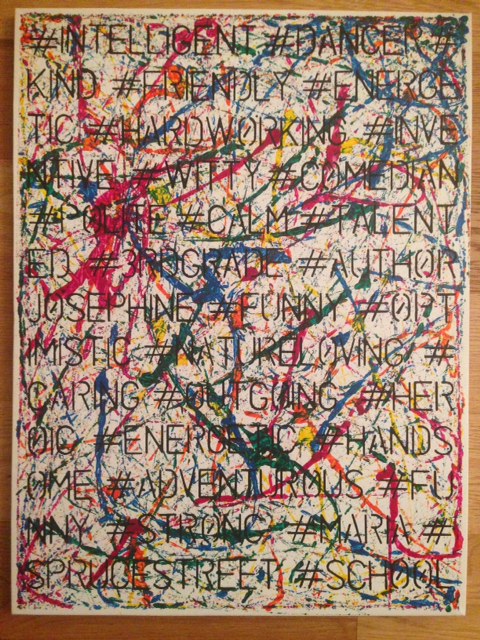 #INTELLIGENT #DANCER #
KIND #FRIENDLY #ENERGE
TIC #HARDWORKING #INVE
NTIVE #WITTY #COMEDIAN
#POLITE #CALM #TALENT
ED #3RDGRADE #AUTHOR
JOSEPHINE #FUNNY #OPT
IMISTIC #NATURELOVING #
CARING #OUTGOING #HER
OIC #ENERGETIC #HANDS
OME #ADVENTUROUS #FU
NNY #STRONG #MARIA #
SPRUCESTREET #SCHOOL